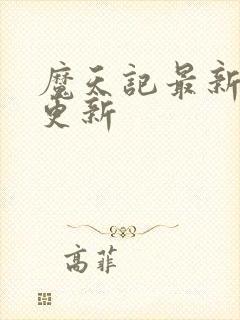 魔天記最新
更新
高菲